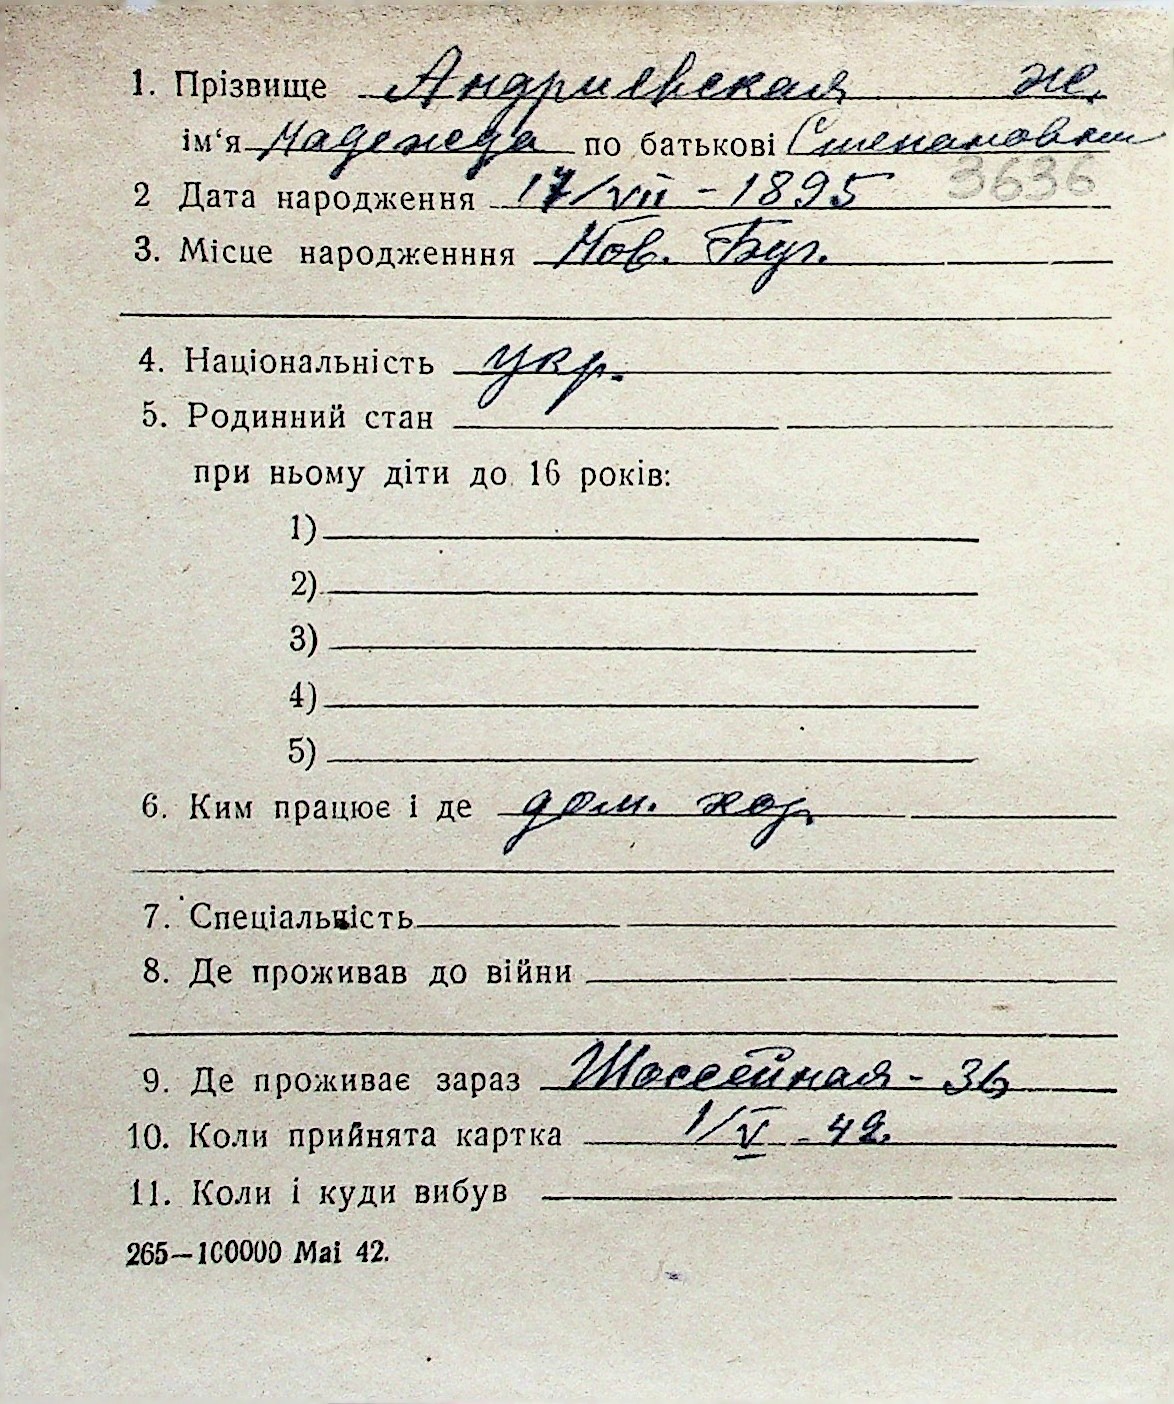 1. Прізвище Андриевская ж.
ім‘я Надежда по батькові Степановна
3636
2 Дата народження 17/VII - 1895
3. Місце народженння Нов. Буг.
4. Національність укр.
5. Родинний стан
при ньому діти до 16 років:
1)
2)
3)
4)
5)
6. Ким працює і де дом. хоз.
7. Спеціальність
8. Де проживав до війни
9. Де проживає зараз Шоссейная - 36
10. Коли прийнята картка 1/V - 42.
11. Коли і куди вибув
265—100000 Mai 42.